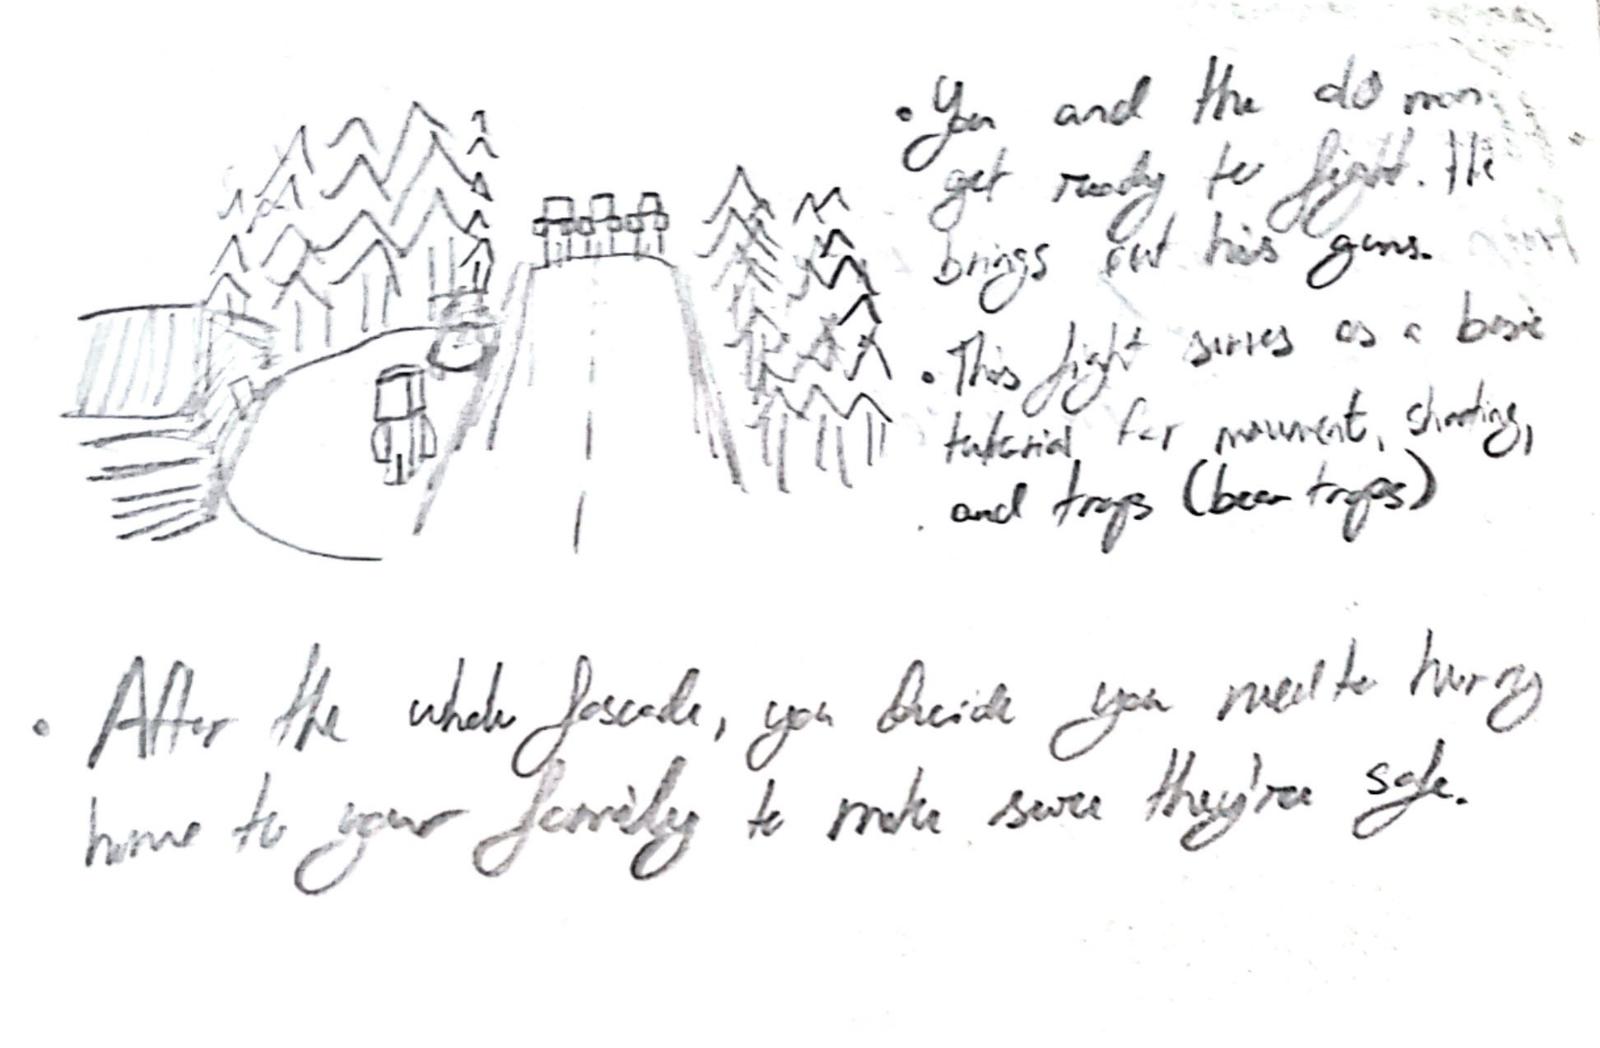 • You and the old man
get ready to fight. He
brings out his guns.
• This fight serves as a basic
tutorial for movement, shooting,
and traps (bear traps)
• After the whole fascade, you decide you need to hurry
home to your family to make sure they're safe.